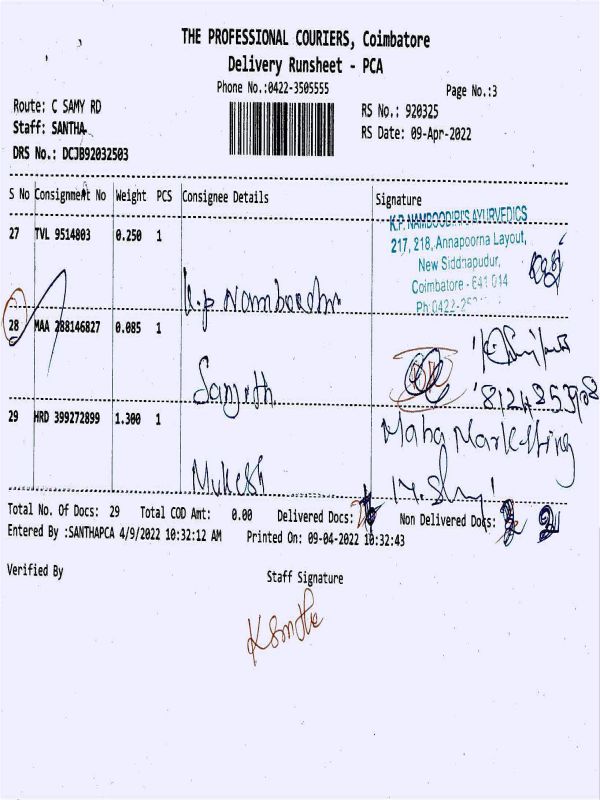 THE PROFESSIONAL COURIERS, Coimbatore
Delivery Runsheet - PCA
Phone No.:0422-3505555
Page No.:3
Route: C SAMY RD
RS No.: 920325
Staff: SANTHA
RS Date: 09-Apr-2022
DRS No.: DCJB92032503
S No Consignment No Weight PCS Consignee Details Signature
K.P. NAMBOODIRI'S AYURVEDICS
27 TVL 9514803 0.250 1
217, 218, Annapoorna Layout,
New Siddhapudur,
Coimbatore - 641 014
Ph:0422-25
K.p Namboodri
28 MAA 288146827 0.085 1
Samjith
29 HRD 399272899 1.300 1
Maha Marketting
Mukesh
Total No. Of Docs: 29 Total COD Amt: 0.00 Delivered Docs: Non Delivered Docs:
Entered By :SANTHAPCA 4/9/2022 10:32:12 AM Printed On: 09-04-2022 10:32:43
Verified By
Staff Signature